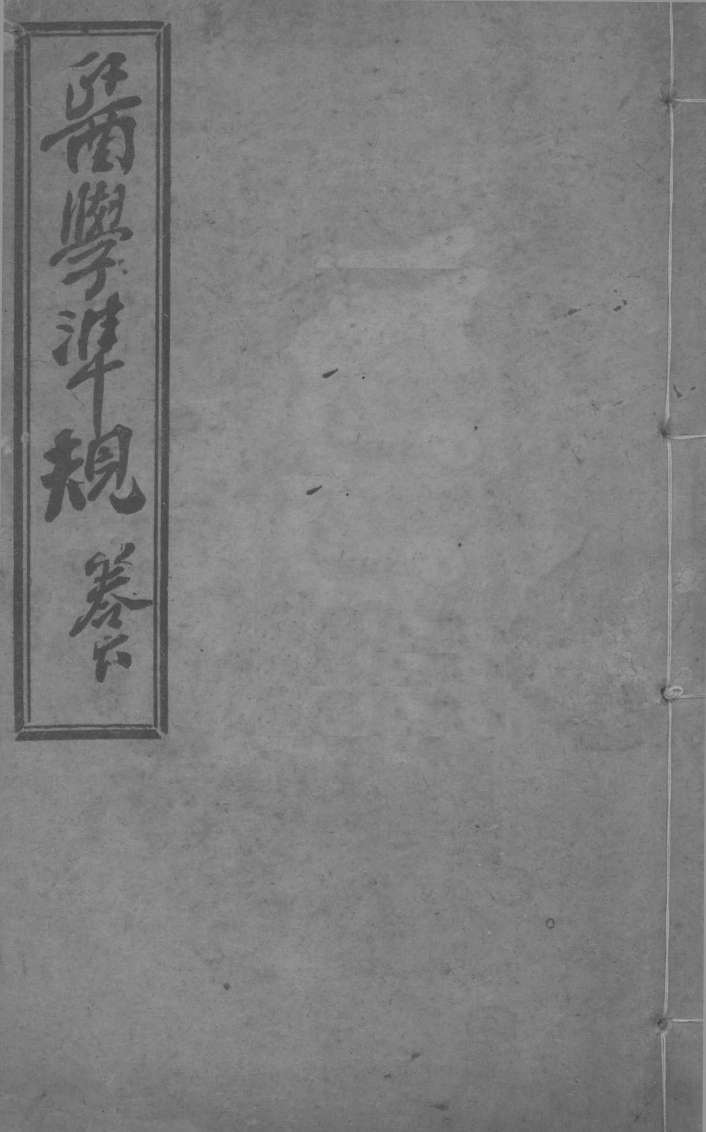 醫學準規 卷六